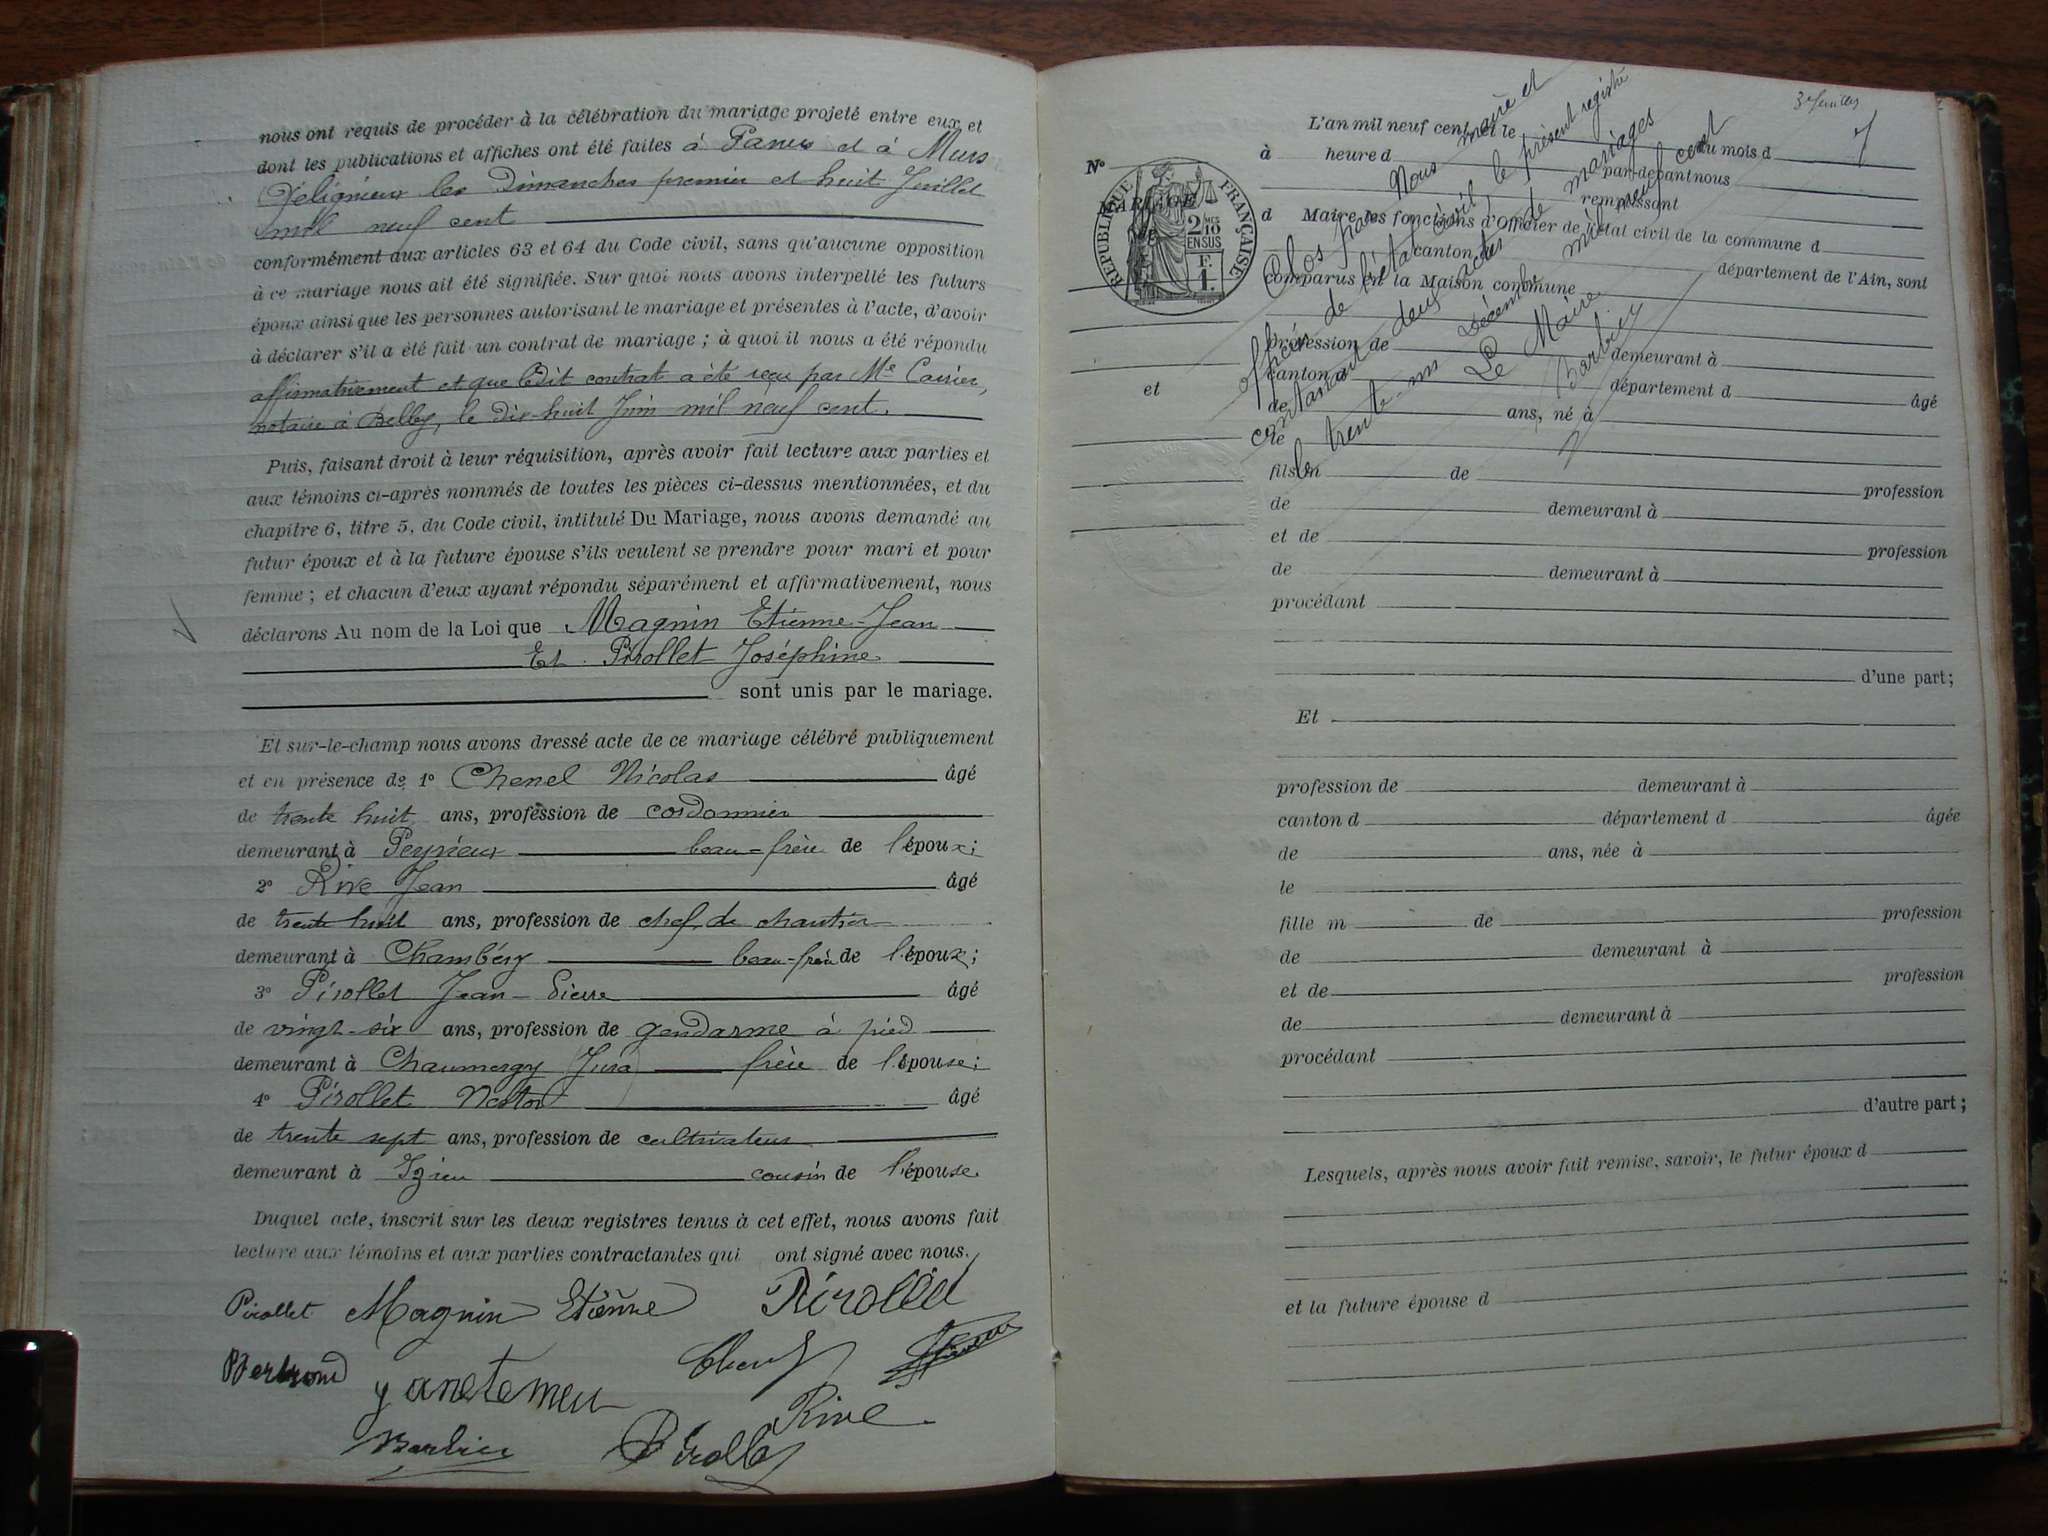 nous ont requis de procéder à la célébration du mariage projeté entre eux et
dont les publications et affiches ont été faites à Parves et à Murs
Gélignieux les Dimanches premier et huit Juillet
mil neuf cent
conformément aux articles 63 et 64 du Code civil, sans qu'aucune opposition
à ce mariage nous ait été signifiée. Sur quoi nous avons interpellé les futurs
époux ainsi que les personnes autorisant le mariage et présentes à l'acte, d'avoir
à déclarer s'il a été fait un contrat de mariage ; à quoi il nous a été répondu
affirmativement et que ledit contrat a été reçu par Me Carrier,
notaire à Belley, le dix-huit Juin mil neuf cent.
Puis, faisant droit à leur réquisition, après avoir fait lecture aux parties et
aux témoins ci-après nommés de toutes les pièces ci-dessus mentionnées, et du
chapitre 6, titre 5, du Code civil, intitulé Du Mariage, nous avons demandé au
futur époux et à la future épouse s'ils veulent se prendre pour mari et pour
femme ; et chacun d'eux ayant répondu séparément et affirmativement, nous
déclarons Au nom de la Loi que Magnin Etienne-Jean
Et Pirollet Joséphine
sont unis par le mariage.
Et sur-le-champ nous avons dressé acte de ce mariage célébré publiquement
et en présence de 1° Chenel Nicolas âgé
de trente huit ans, profession de cordonnier
demeurant à Peyrieux beau-frère de l'époux ;
2° Rive Jean âgé
de trente huit ans, profession de chef de chantier
demeurant à Chambéry beau-frère de l'époux ;
3° Pirollet Jean-Pierre âgé
de vingt-six ans, profession de gendarme à pied
demeurant à Chaumergy (Jura) frère de l'épouse ;
4° Pirollet Nestor âgé
de trente sept ans, profession de cultivateur
demeurant à Izieu cousin de l'épouse
Duquel acte, inscrit sur les deux registres tenus à cet effet, nous avons fait
lecture aux témoins et aux parties contractantes qui ont signé avec nous.
Pirollet Magnin Etienne Pirollet
Bertrand
Rive
Barbier Pirollet
3e feuillet
7
L'an mil neuf cent et le du mois d
N° à heure d par-devant nous
MARIAGE
RÉPUBLIQUE FRANÇAISE
2/10 MES EN SUS
F. 1.
remplissant
d Maire les fonctions d'Officier de l'état civil de la commune d
canton d département de l'Ain, sont
comparus en la Maison commune
Clos par Nous maire et
officier de l'état civil le présent registre
contenant deux actes de mariages
le trente-un Décembre mil neuf cent
Le Maire
Barbier
profession de demeurant à
et canton d département d âgé
de ans, né à
le
fils m de profession
de demeurant à
et de profession
de demeurant à
procédant
d'une part ;
Et
profession de demeurant à
canton d département d âgée
de ans, née à
le
fille m de profession
de demeurant à
et de profession
de demeurant à
procédant
d'autre part ;
Lesquels, après nous avoir fait remise, savoir, le futur époux d
et la future épouse d